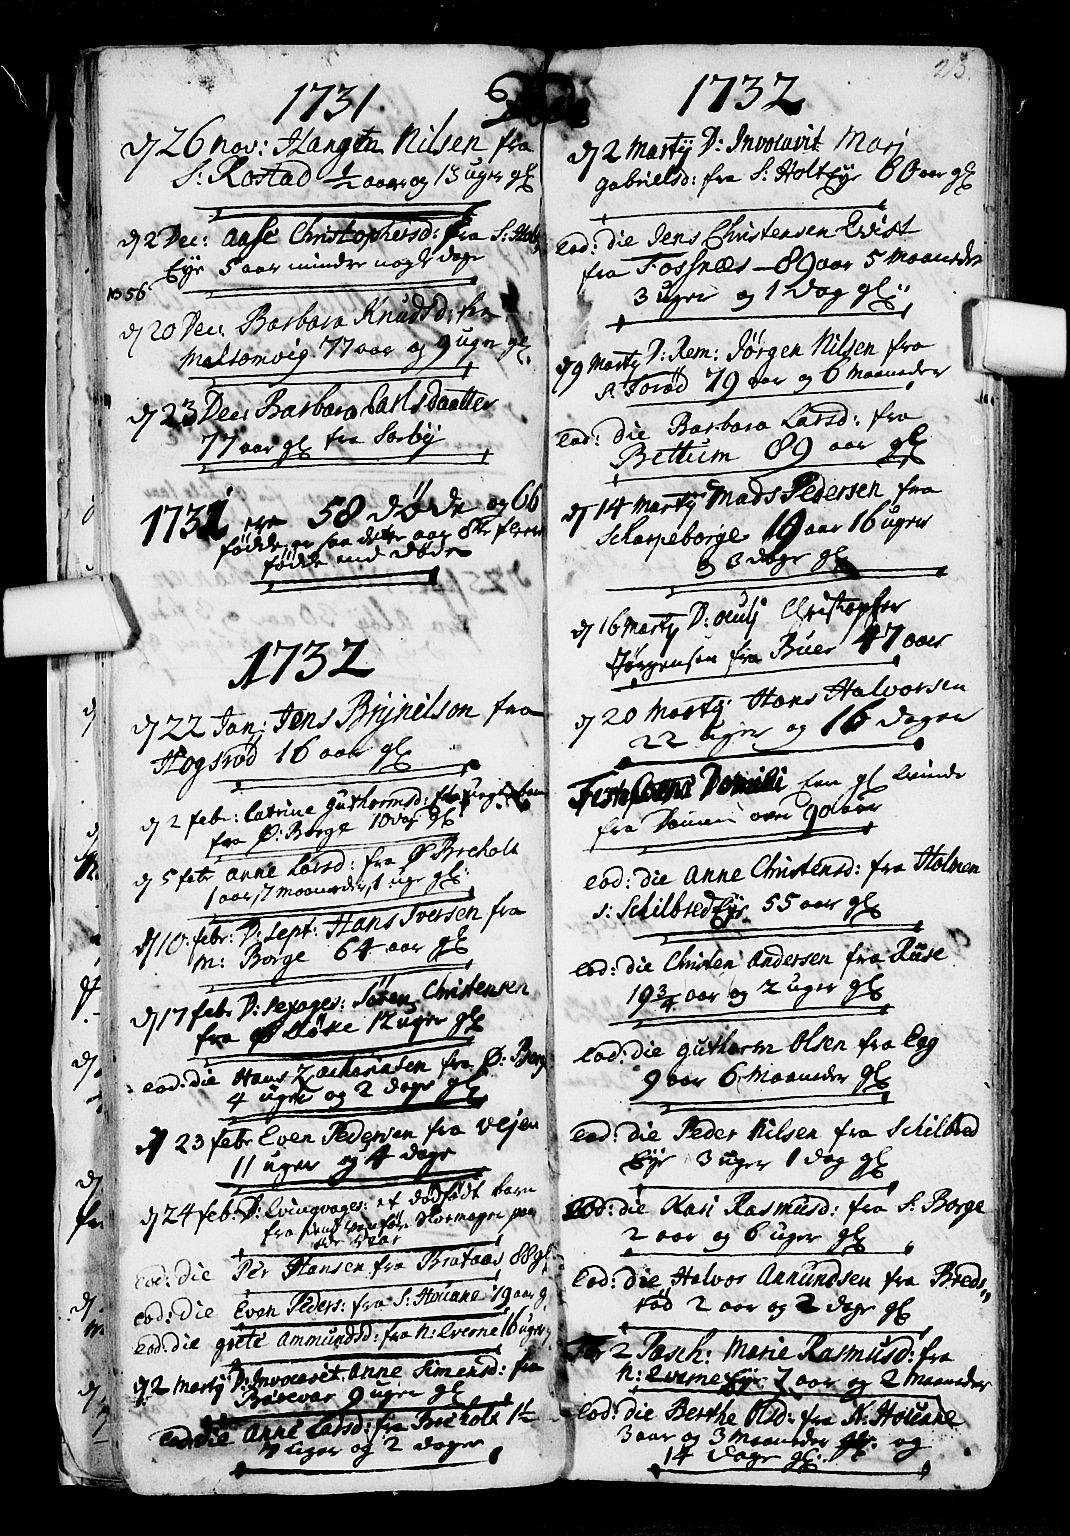 1731.
dj 26 nov: Hangen Nilsen fra
S: Rostad ½ aar og 13 uger gl
dj 2 Dec: Aasse Christophersd: fra S: Holt
Eye 5 aar mindre nogle dage
1656
dj 20 Dec: Barbara Knudsd: fra
77 aar og 9 uger gl
dj 23 Dec: Barbara Carlsdaatter
77 aar gl fra Sorbÿ
1731 ere 58 døde og 66
fødde er saa dette aar 8te flere
fødde end døde
1732
dj 22 Jan: Jens Brÿnelson fra
Hogsrød 16 aar gl
dj 2 febr: Catrine Guthormsd:
fra Ø: Borge 10 aar gl
dj 5 febr Anne Larsd: fra Ø Breholt
1 aar, 7 maaneder, 1 uge gl:
dj 10 febr: D: Sept: Hans Iversen fra
M: Borge 64 aar gl
dj 17 febr D: Sexages: Søren Christensen
fra Ø 12 uger gl
Eod: die Hans Zachariasen fra Ø: Borge
4 uger og 2 dage gl
dj 23 febr Even Pedersen fra Vejen
11 uger og 4 dage
dj 24 feb: D: Qvinqvages: et dødfødt barn
fra
Eod: die Per Hansen fra Brataas 88 gl
Eod: die Even Peders: fra S: Houane 19 aar g
Eod: die Grete Ammundsd: fra N: Everne 16 uger
dj 2 Martÿ D: Invocavit Anne Simensd: fra
Bøievar 9 uger gl
Eod: die Anne Larsd: fra Breholt 1½
7 uger og 2 dager
23.
1732
dj 2 Martÿ D: Invocavit Mari
Gabrielsd: fra S: Holt Eye 60 aar gl
Eod: die Jens Christensen Qvist
fra Fossnæs 89 aar 5 Maaneder
3 uger og 1 Dag gl:
dj 9 Martÿ D: Rem: Jørgen Nilsen fra
Torød 79 aar og 6 Maaneder
Eod: die Barbara Larsd: fra
Bettum 89 aar gl
dj 14 Martÿ Mads Pedersen fra
Scharpeborge 19 aar 16 uger
og 3 dage gl
dj 16 Martÿ D: Oculj Christopher
Jørgensen fra Buer 47 aar
dj 20 Martÿ Hans Halvorsen
22 uger og 16 dager
Domini En gl Qvinde
fra over 90 aar
Eod: die Anne Christensd: fra Holmen
S: Schilbred Eye 55 aar gl
Eod: die Christen Andersen fra Ruse
19¾ aar og 2 uger gl
Eod: die Guthorm Olsen fra Egg
9 aar 6 Maaneder gl
Eod: die Peder Nilsen fra Schilbred
Eye 3 uger 1 dag gl
Eod: die Kari Rasmusd: fra S: Borge
2 aar og 6 uger gl
Eod: die Halvor Annundsen fra Breds
rød 2 aar og 2 dage gl
Fer 2 Pasch: Marie Rasmusd: fra
N: Everne Eye 7 aar og 2 Maaneder
Eod: die Berthe Olsd: fra N: Houane
3 aar og 3 Maaneder og
14 dage gl: